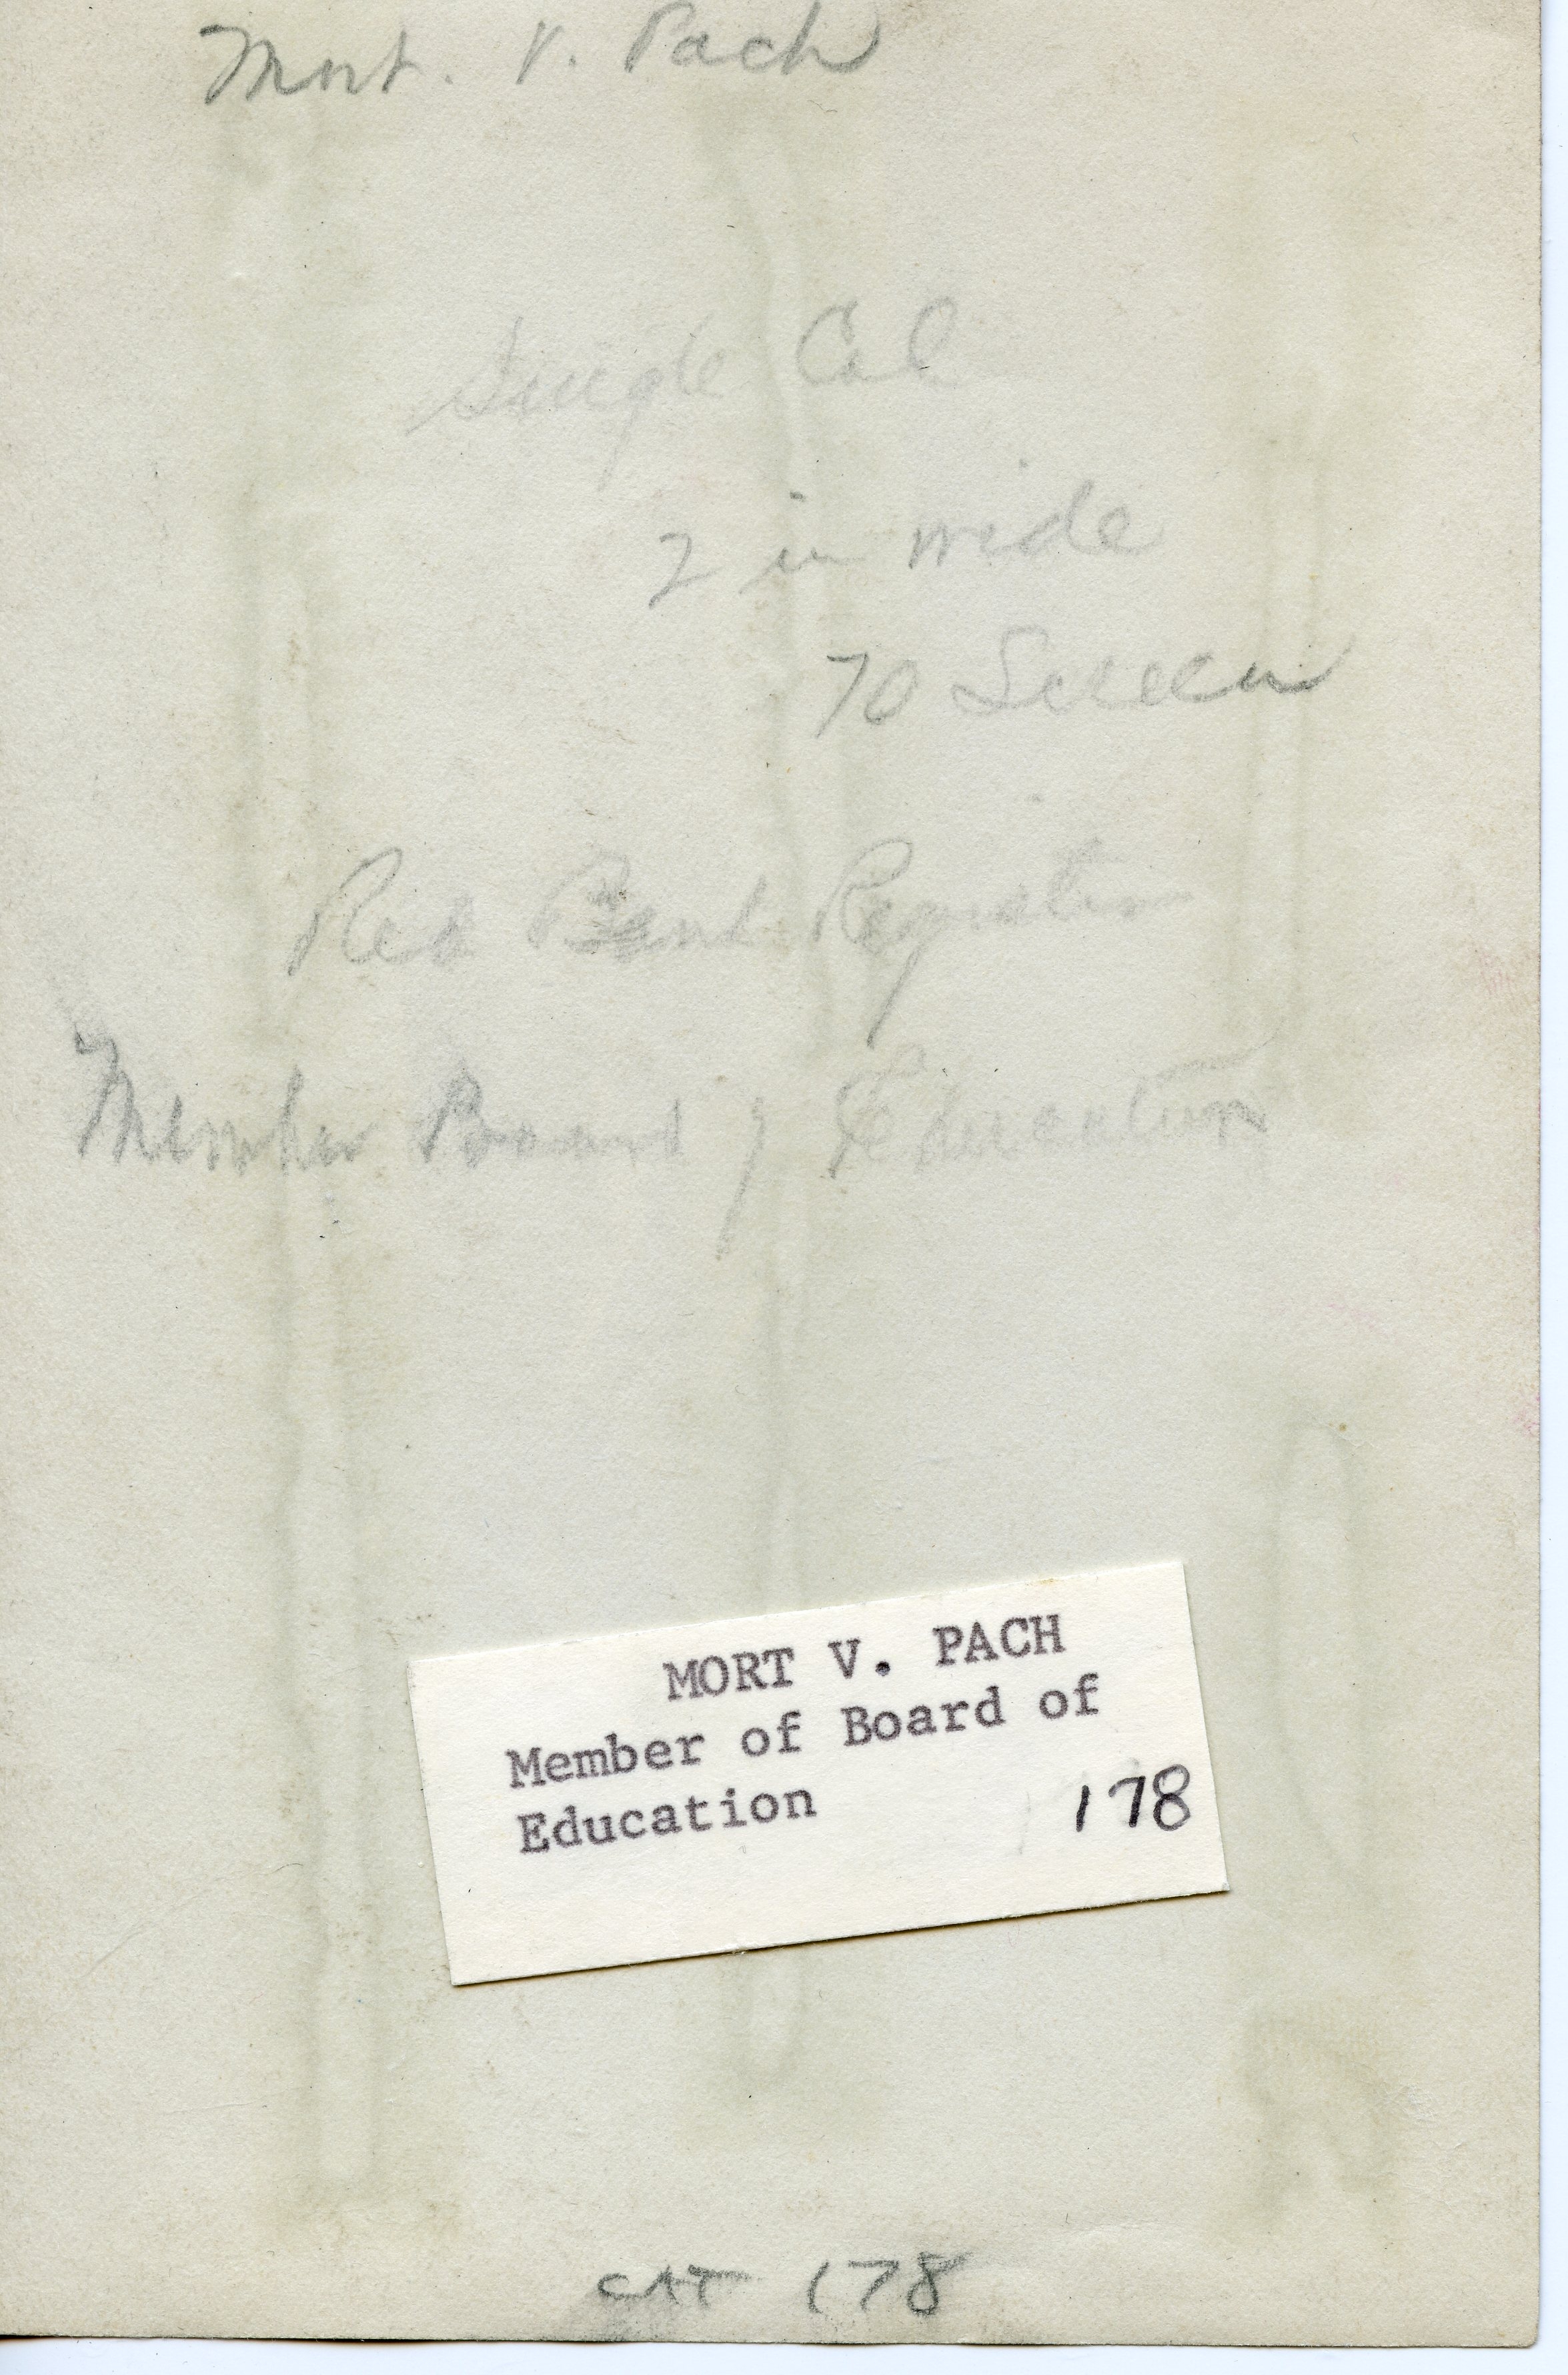 Mort. V. Pach
Single Col
2 in wide
70 Screen
Red Bank Register
Member Board of Education
MORT V. PACH
Member of Board of
Education 178
CAT 178